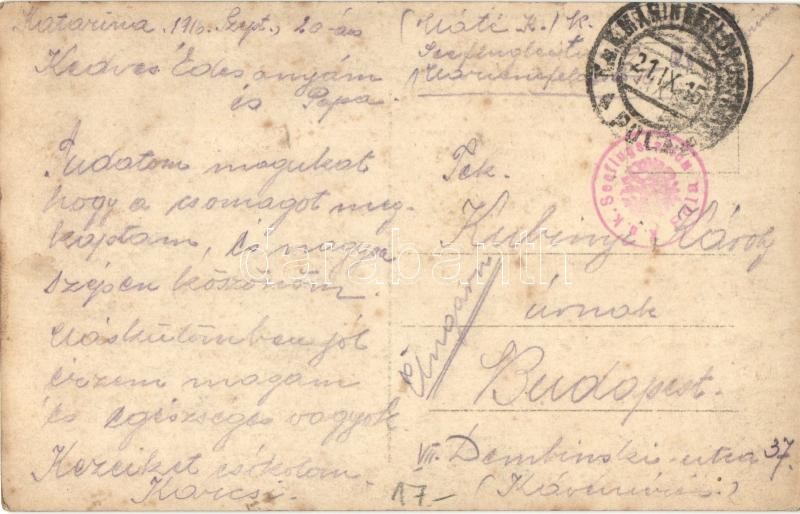 Katarina. 1916. Szept. 20-án
Kedves Édes anyám
és Papa.
Tudatom magukat
hogy a csomagot meg-
kaptam, és nagyon
szépen köszönöm.
Máskülömben jól
érzem magam
és egészséges vagyok.
Kezeiket csókolom
Karcsi.
17.-
K.u.K. MARINEFELDPOSTAMT
21.IX.16
POLA
k.u.k. Seeflugstation
Tek.
Kubinyi Károly
úrnak
Budapest.
Ungarn
VII. Dembinski-utca 37.
darabanth